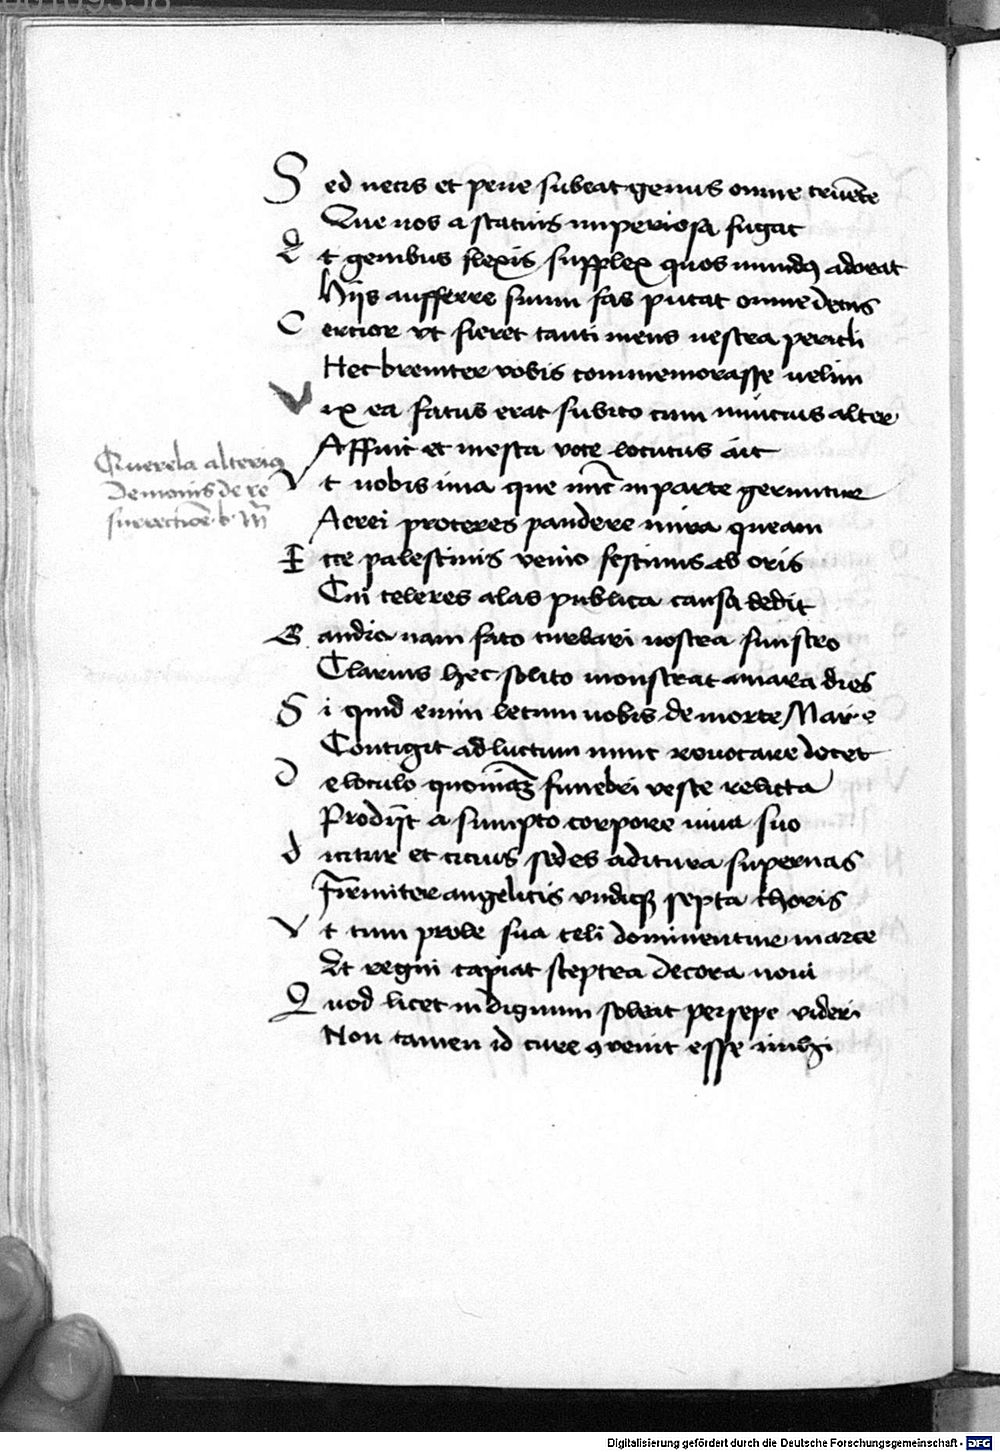 Sed necis et pene subeat genus omne cruente
Que nos a statuis imperiosa fugat
Et genibus flexis supplex quos mundus adorat
Hijs aufferre suum fas putat omne decus
Certior vt fieret tanti mens nestra pericli
Hec breuiter vobis commemorasse uelim
Vix ea fatus erat subito cum nuncius alter
Affuit et mesta uoce locutus ait
Querela alterius
Demonis de re
surrectione b. M
Vt uobis ima que nunc in parte geruntur
Aerei proceres pandere mira queam
Ecce palestinis venio festinus ab oris
Cui celeres alas publica causa dedit
Gaudia nam fato turbari nostra sinistro
Clarius hec solito monstrat amara dies
Si quid enim letum nobis de morte Marie
Contigit ad luctum nunc reuocare decet
De loculo quoniam funebri veste relicta
Prodijt a sumpto corpore uiua suo
dicitur et citius sedes aditura supernas
Firmiter angelicis vndique septa choris
Vt cum prole sua celi dominentur in arce
Et regni capiat sceptra decora noui
Quod licet indignum soleat persepe videri
Non tamen id cure conuenit esse michi
Digitalisierung gefördert durch die Deutsche Forschungsgemeinschaft - DFG